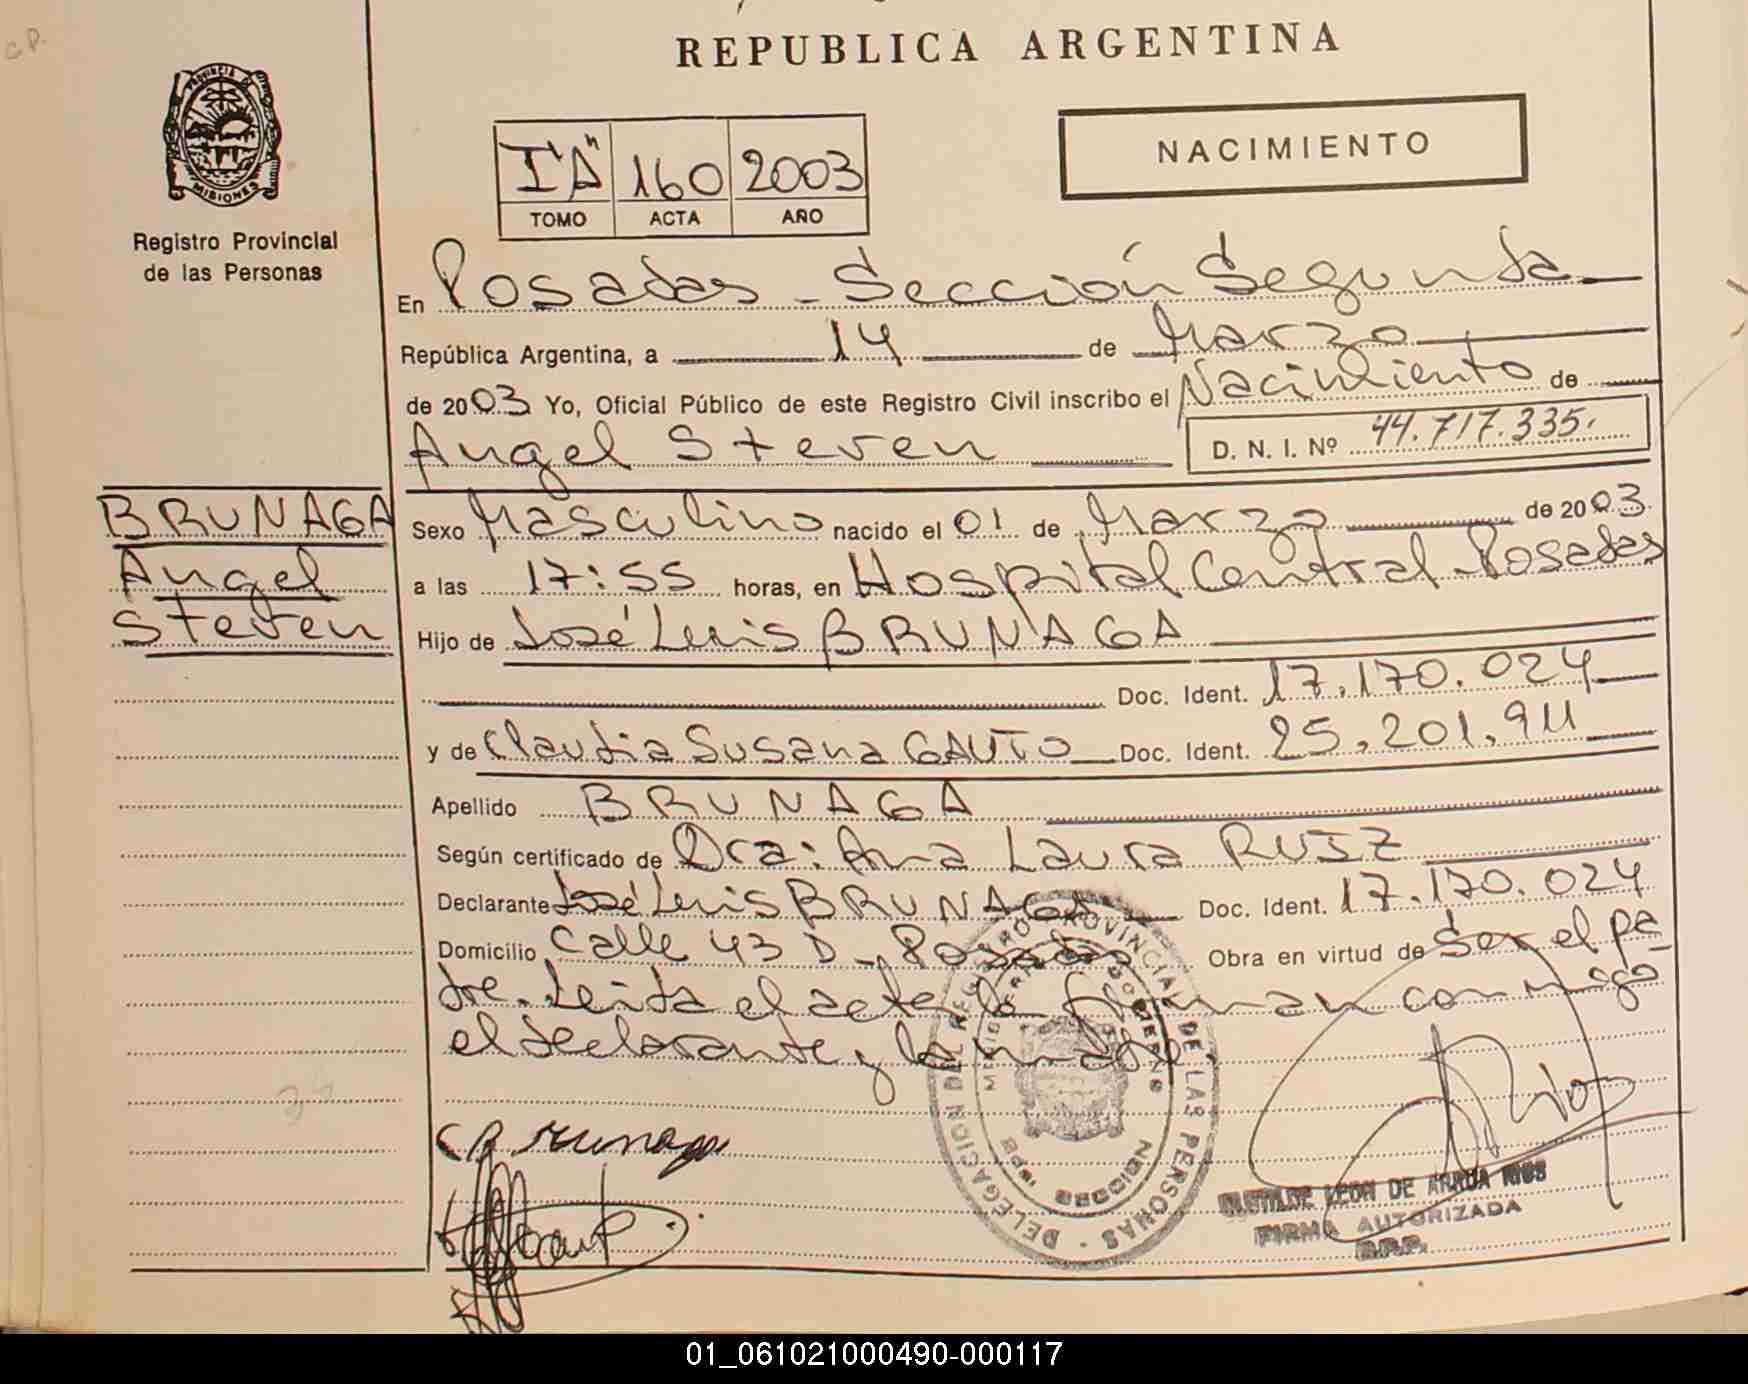 C.P.
REPUBLICA ARGENTINA
PROVINCIA DE
MISIONES
Registro Provincial
de las Personas
I "A" 160 2003
TOMO ACTA AÑO
NACIMIENTO
En Posadas - Sección Segunda
República Argentina, a 14 de Marzo
de 2003 Yo, Oficial Público de este Registro Civil inscribo el Nacimiento de
Angel Steven
D. N. I. Nº 44.717.335.
BRUNAGA
Angel
Steven
Sexo Masculino nacido el 01 de Marzo de 2003.
a las 17:55 horas, en Hospital Central - Posadas
Hijo de José Luis BRUNAGA
Doc. Ident. 17.170.024
y de Claudia Susana GAUTO Doc. Ident. 25.201.911
Apellido BRUNAGA
Según certificado de Dra: Ana Laura RUIZ
Declarante José Luis BRUNAGA Doc. Ident. 17.170.024
Domicilio Calle 43 D - Posadas Obra en virtud de ser el pa-
dre. Leída el acta, la firman conmigo
el declarante y la madre.
DELEGACION DEL REGISTRO PROVINCIAL DE LAS PERSONAS
LEON DE ARRUA RIOS
FIRMA AUTORIZADA
01_061021000490-000117